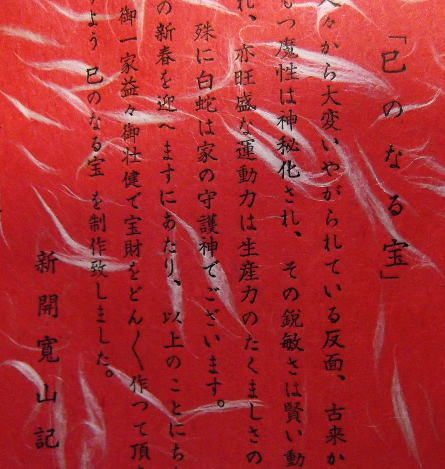 「巳のなる宝」
々から大変いやがられている反面、古来か
もつ魔性は神秘化され、その鋭敏さは賢い動
れ、亦旺盛な運動力は生産力のたくましさの
殊に白蛇は家の守護神でございます。
の新春を迎へますにあたり、以上のことにち
御一家益々御壮健で宝財をどん〱作って頂
よう 巳のなる宝 を制作致しました。
新開寛山記